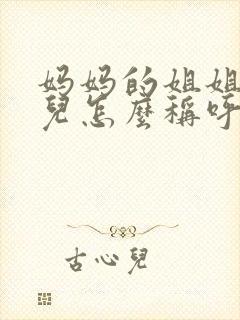 妈妈的姐姐
兒怎麼稱呼
古心兒